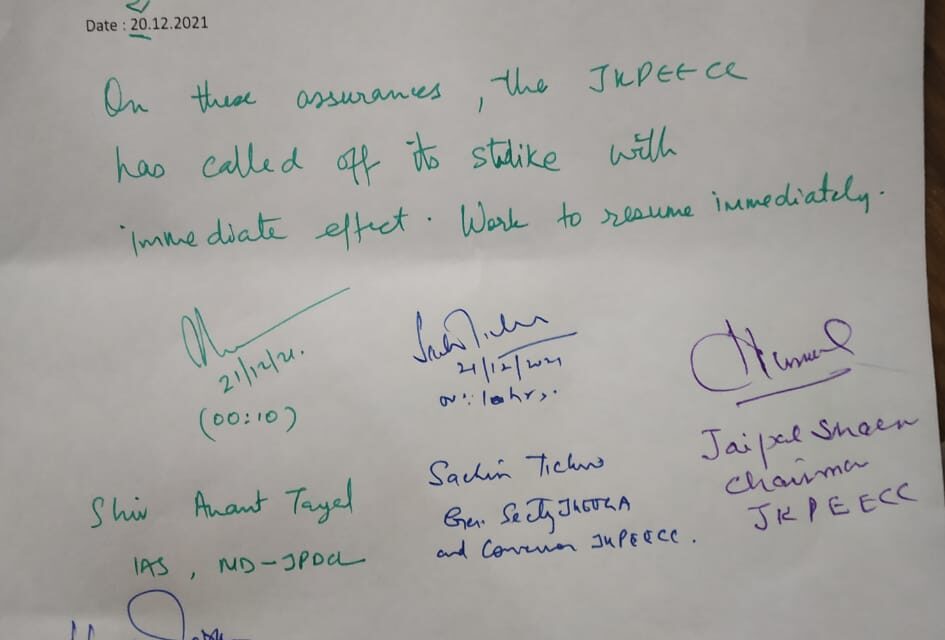 Date : 20.12.2021
On these assurances, the JKPEECC
has called off its strike with
immediate effect. Work to resume immediately.
21/12/21.
(00:10)
21/12/2021
00:10hrs.
Shiv Anant Tayal
IAS, MD-JPDCL
Sachin Tickoo
Gen. Sectty JKEEGA
and Convenor JKPEECC.
Jaipal Sharma
Chairman
JKPEECC